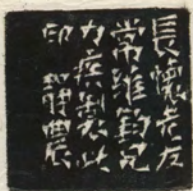 長懷老友
常維鈞兄
力疾製此
印 靜農